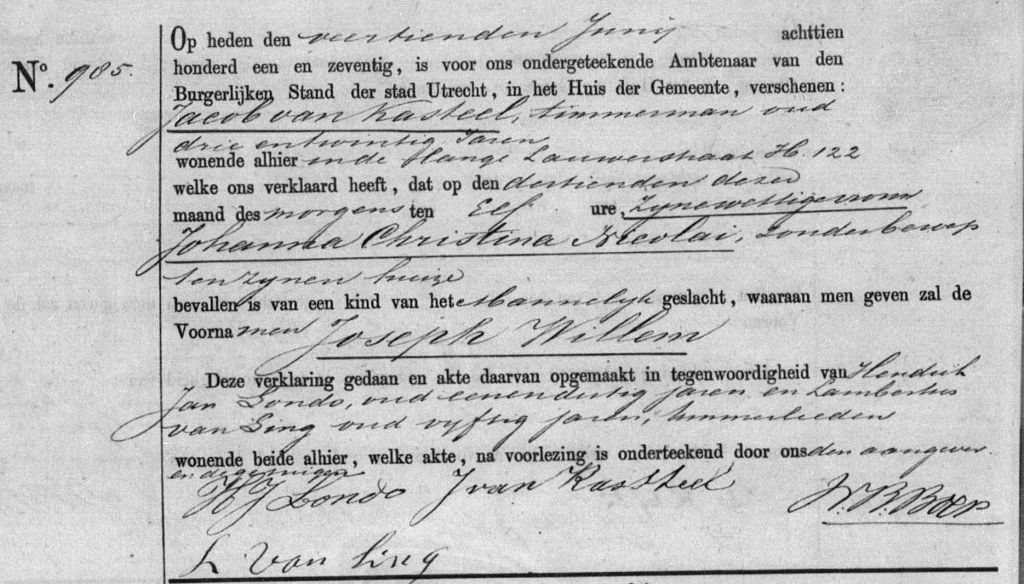 Op heden den veertienden Junij achttien
No. 985. honderd een en zeventig, is voor ons ondergeteekende Ambtenaar van den
Burgerlijken Stand der stad Utrecht, in het Huis der Gemeente, verschenen:
Jacob van Kasteel, timmerman oud
drie entwintig Jaren
wonende alhier in de Lange Lauwerstraat H. 122
welke ons verklaard heeft, dat op den dertienden dezer
maand des morgens ten Elf ure, zyne wettige vrouw
Johanna Christina Nicolai, zonder beroep
ten zynen huize
bevallen is van een kind van het Mannelyk geslacht, waaraan men geven zal de
Voornamen Joseph Willem
Deze verklaring gedaan en akte daarvan opgemaakt in tegenwoordigheid van Hendrik
Jan Londo, oud eenendertig jaren en Lambertus
van Ling oud vyftig jaren, timmerlieden
wonende beide alhier, welke akte, na voorlezing is onderteekend door ons den aangever
en de getuigen
HJ Londo J van Kastteel W.B. Boer
L van Ling